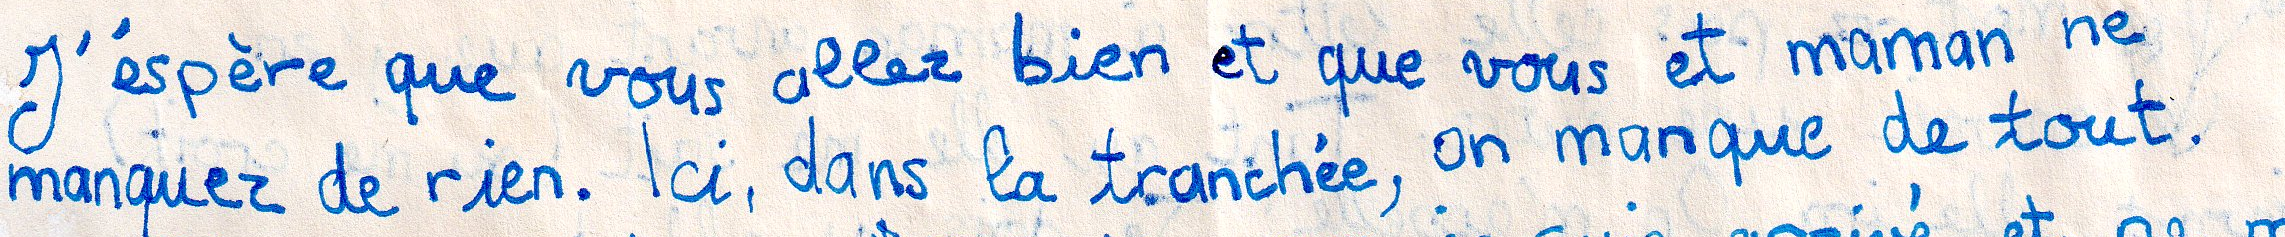 J'éspère que vous allez bien et que vous et maman ne
manquez de rien. Ici, dans la tranchée, on manque de tout.